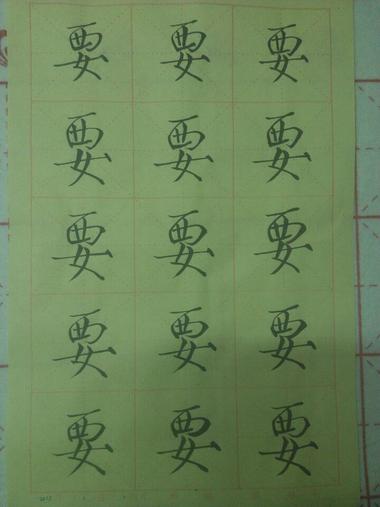 要 要 要
要 要 要
要 要 要
要 要 要
要 要 要